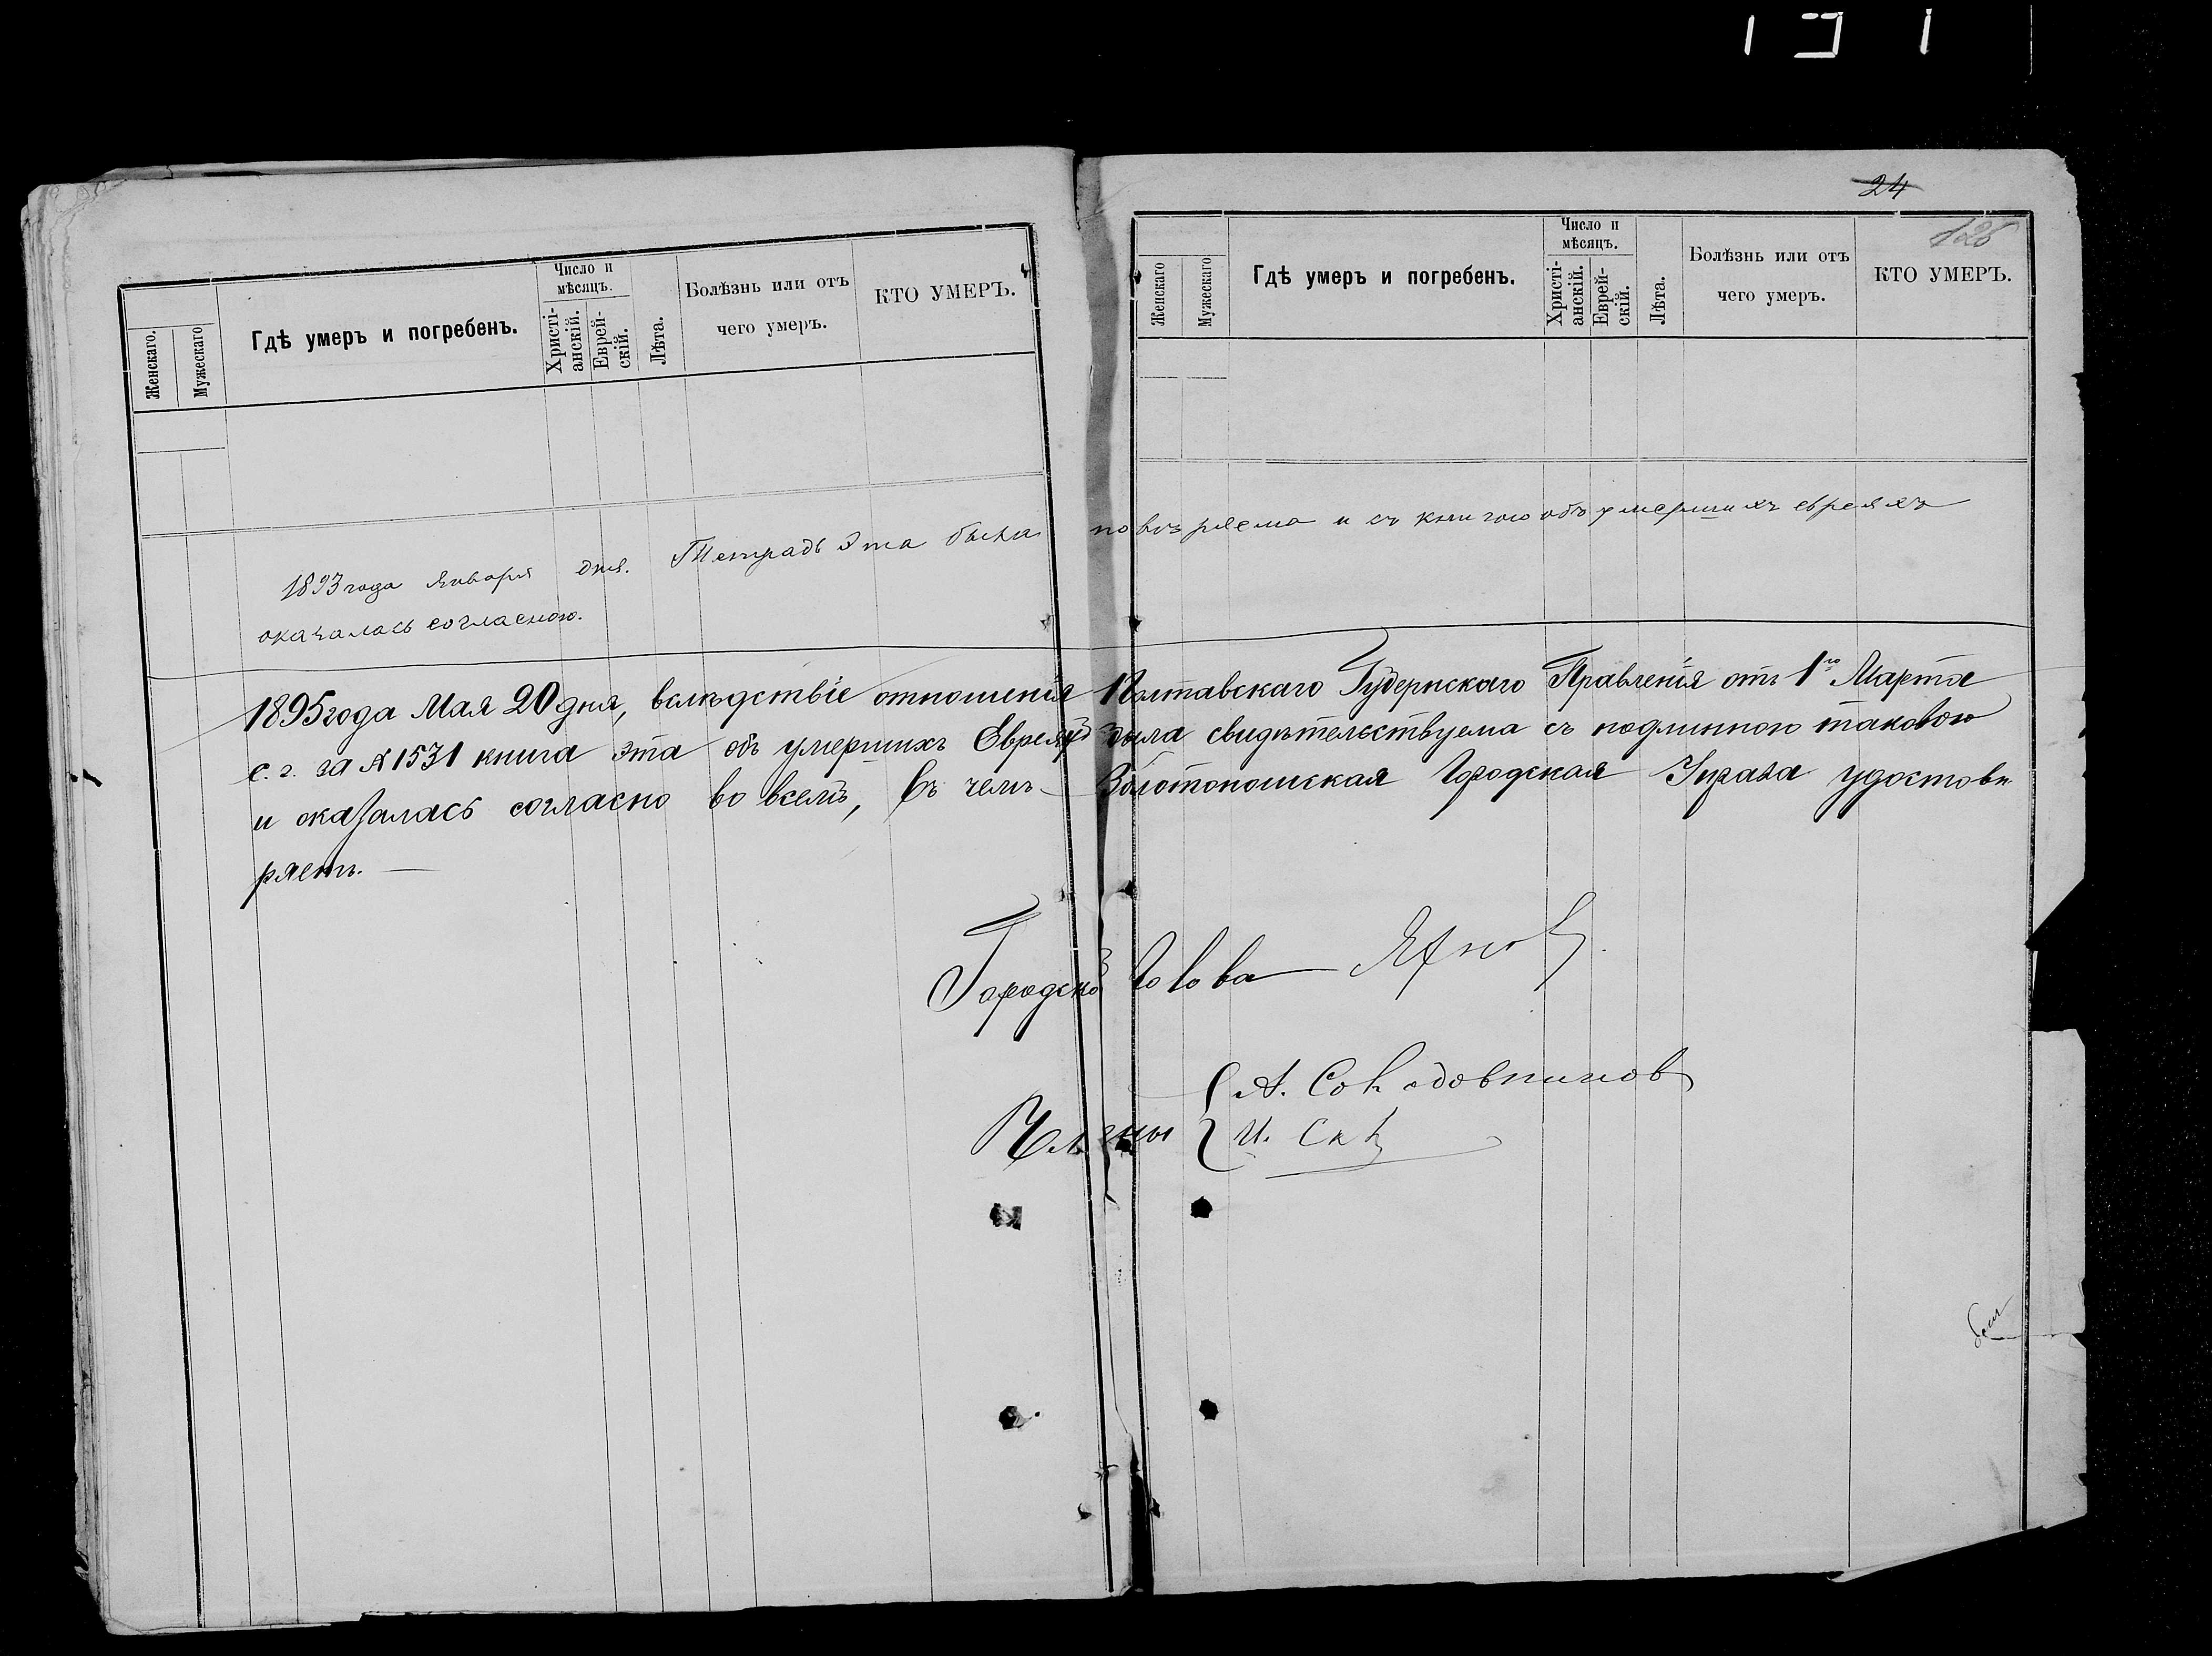 24
Женскаго.
Мужескаго
Гдѣ умеръ и погребенъ.
Число и мѣсяцъ.
Христі-анскій.
Еврей-скій.
Лѣта.
Болѣзнь или отъ чего умеръ.
КТО УМЕРЪ.
Женскаго
Мужескаго
Гдѣ умеръ и погребенъ.
Число и мѣсяцъ.
Христі-анскій.
Еврей-скій.
Лѣта.
Болѣзнь или отъ чего умеръ.
КТО УМЕРЪ.
1893 года Января дня. Тетрадь эта была и съ книгою объ умершихъ евреяхъ
оказалась согласною.
1895 года Мая 20 дня, вслѣдствіе отношенія Полтавскаго Губернскаго Правленія отъ 1го Марта
с. г. за № 1531 книга эта объ умершихъ Евреяхъ была свидѣтельствуема съ подлинною таковою
и оказалась согласно во всемъ, въ чемъ Золотоношская Городская Управа удостовѣ
ряетъ.
Городской Голова
Члены А.
И.